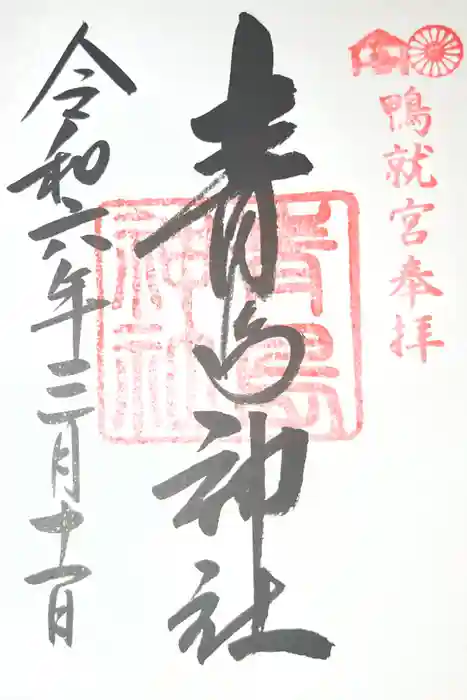 鴨就宮奉拝
青島神社
青島神社
令和六年三月十一日